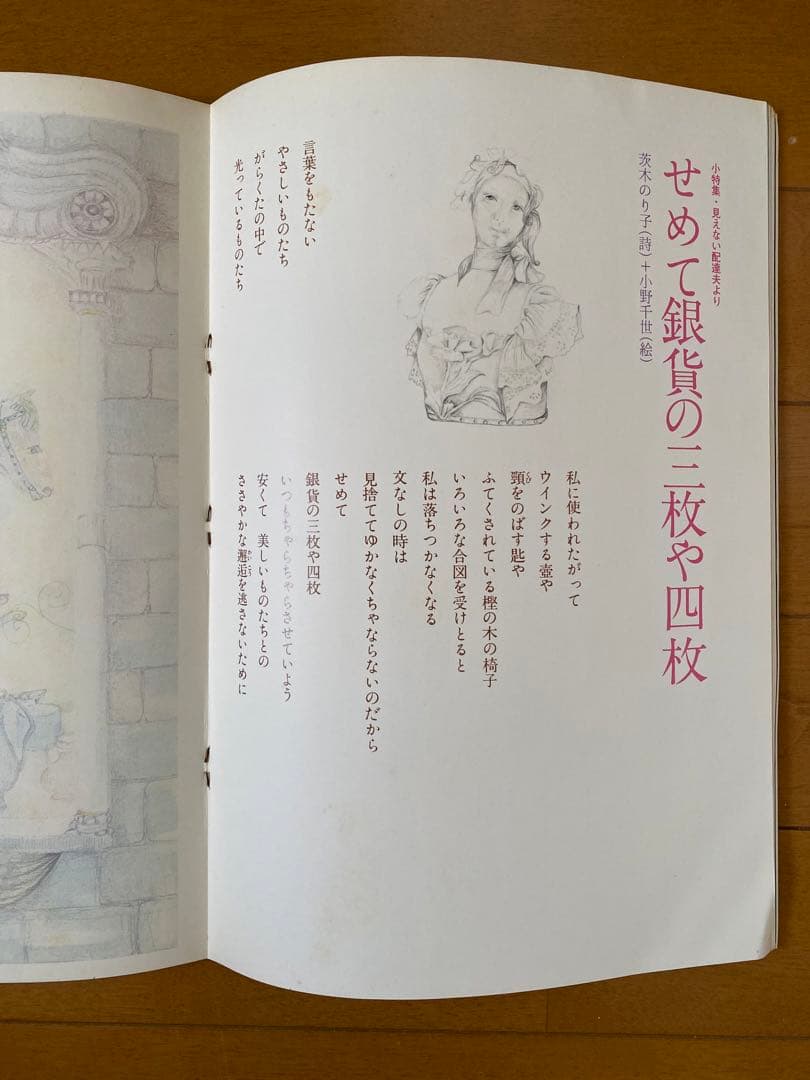 小特集・見えない配達夫より
せめて銀貨の三枚や四枚
茨木のり子(詩)+小野千世(絵)
言葉をもたない
やさしいものたち
がらくたの中で
光っているものたち
私に使われたがって
ウインクする壺や
頸をのばす匙や
ふてくされている樫の木の椅子
いろいろな合図を受けとると
私は落ちつかなくなる
文なしの時は
見捨ててゆかなくちゃならないのだから
せめて
銀貨の三枚や四枚
いつもちゃらちゃらさせていよう
安くて 美しいものたちとの
ささやかな邂逅を逃さないために